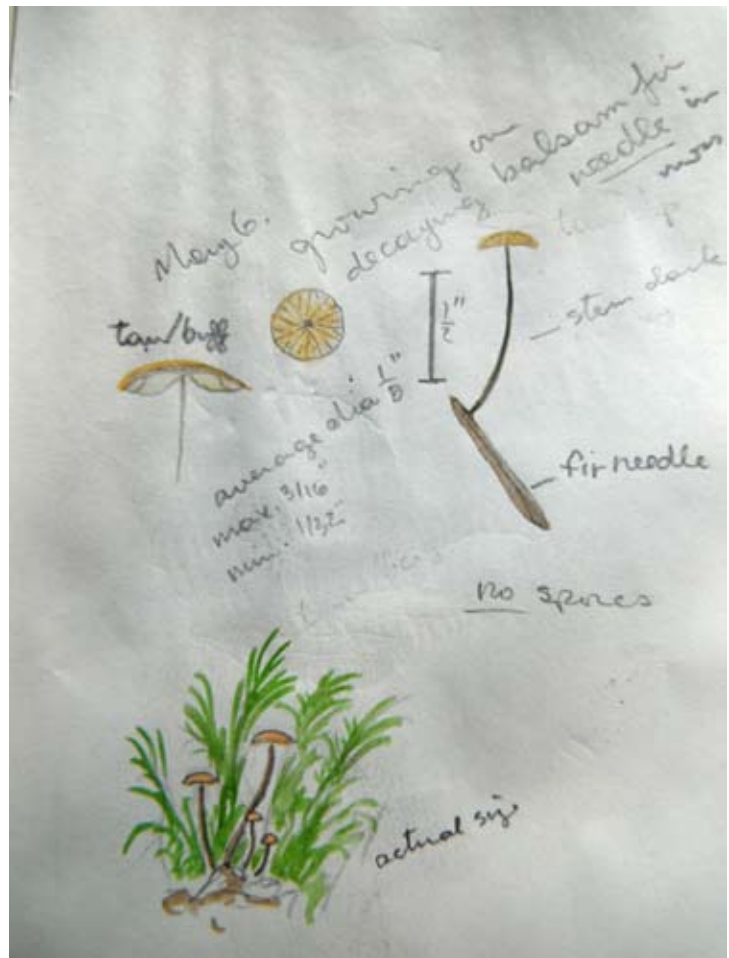 May 6.
growing on
decaying balsam fir
needle in
moss
tan/buff
1/2"
stem dark
average dia. 1/8"
max. 3/16"
min. 1/32"
fir needle
no spores
actual size